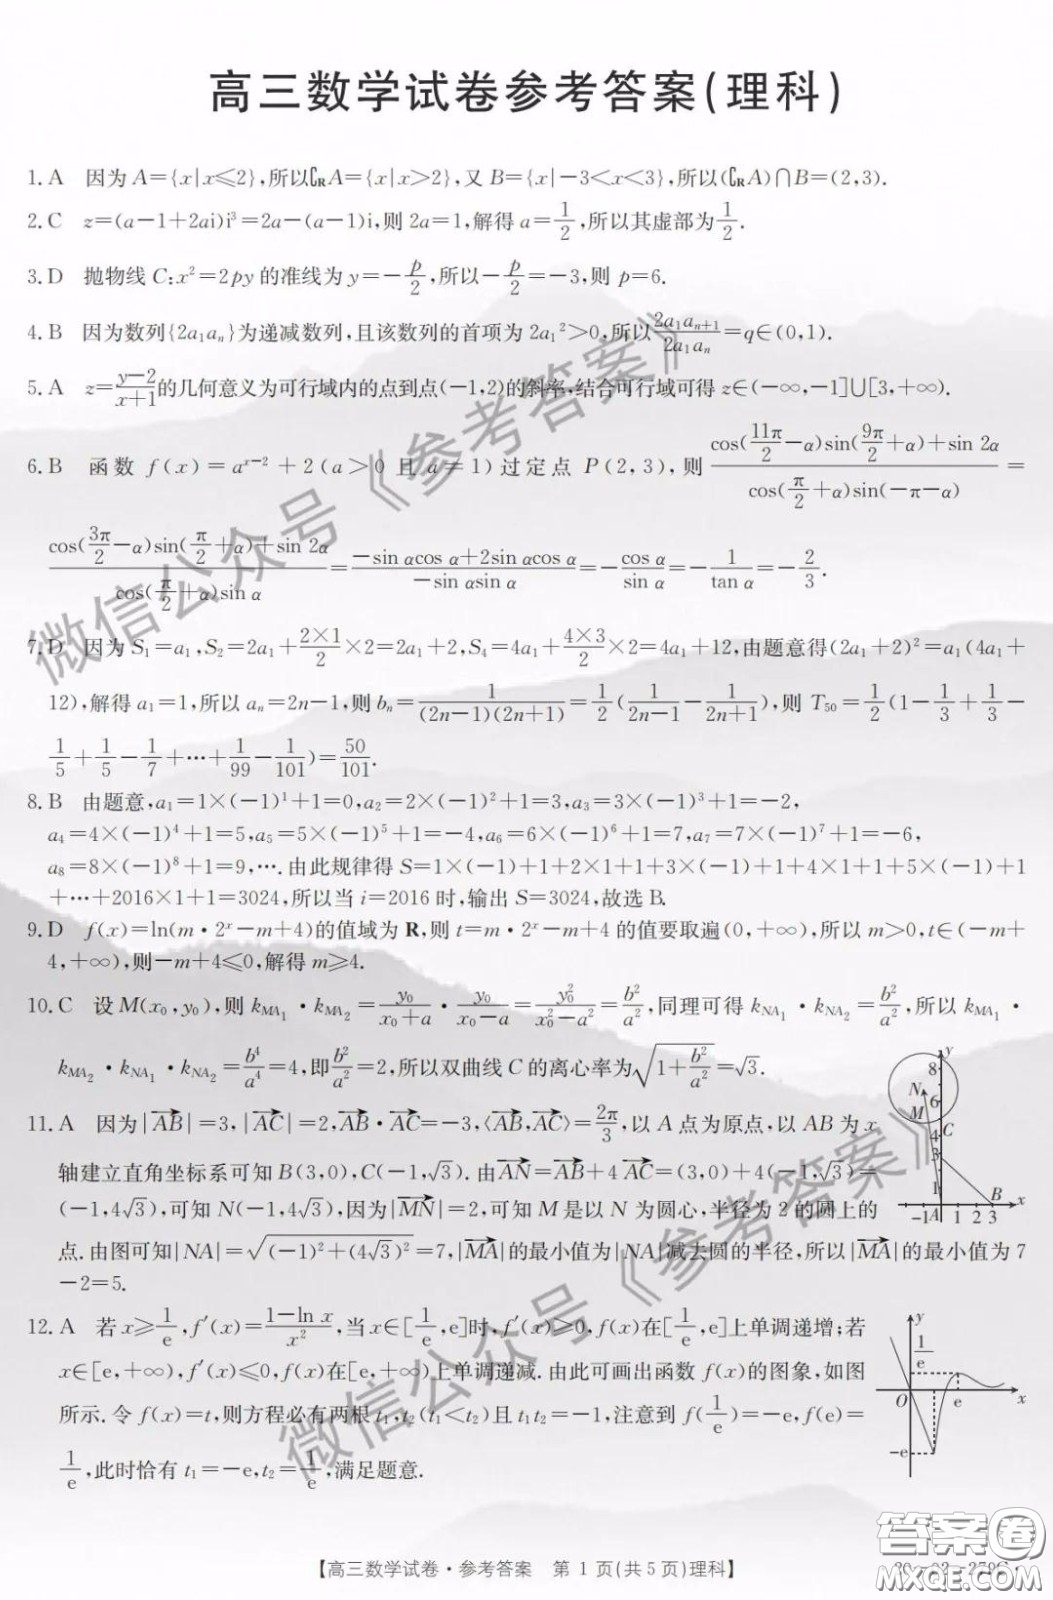 高三数学试卷参考答案(理科)
1. A 因为 A={x|x⩽2},所以∁RA={x|x>2},又 B={x|-3<x<3},所以(∁RA)∩B=(2,3).
2. C z=(a-1+2ai)i³=2a-(a-1)i,则 2a=1,解得 a=1/2,所以其虚部为1/2.
3. D 抛物线 C:x²=2py 的准线为 y=-p/2,所以-p/2=-3,则 p=6.
4. B 因为数列{2a₁aₙ}为递减数列,且该数列的首项为 2a₁²>0,所以 2a₁aₙ₊₁/2a₁aₙ=q∈(0,1).
5. A z=(y-2)/(x+1)的几何意义为可行域内的点到点(-1,2)的斜率,结合可行域可得 z∈(-∞,-1]∪[3,+∞).
6. B 函数 f(x)=aˣ⁻²+2(a>0 且 a≠1)过定点 P(2,3),则 [cos(11π/2-α)sin(9π/2+α)+sin 2α]/[cos(π/2+α)sin(-π-α)] =
[cos(3π/2-α)sin(π/2+α)+sin 2α]/[cos(π/2+α)sin α]=(-sin αcos α+2sin αcos α)/(-sin αsin α)=-cos α/sin α=-1/tan α=-2/3.
7. D 因为 S₁=a₁,S₂=2a₁+(2×1)/2×2=2a₁+2,S₄=4a₁+(4×3)/2×2=4a₁+12,由题意得(2a₁+2)²=a₁(4a₁+
12),解得 a₁=1,所以 aₙ=2n-1,则 bₙ=1/((2n-1)(2n+1))=1/2(1/(2n-1)-1/(2n+1)),则 T₅₀=1/2(1-1/3+1/3-
1/5+1/5-1/7+…+1/99-1/101)=50/101.
8. B 由题意,a₁=1×(-1)¹+1=0,a₂=2×(-1)²+1=3,a₃=3×(-1)³+1=-2,
a₄=4×(-1)⁴+1=5,a₅=5×(-1)⁵+1=-4,a₆=6×(-1)⁶+1=7,a₇=7×(-1)⁷+1=-6,
a₈=8×(-1)⁸+1=9,…. 由此规律得 S=1×(-1)+1+2×1+1+3×(-1)+1+4×1+1+5×(-1)+1
+…+2016×1+1=3024,所以当 i=2016 时,输出 S=3024,故选 B.
9. D f(x)=ln(m·2ˣ-m+4)的值域为 R,则 t=m·2ˣ-m+4 的值要取遍(0,+∞),所以 m>0,t∈(-m+
4,+∞),则-m+4⩽0,解得 m⩾4.
10. C 设 M(x₀,y₀),则 k_MA₁·k_MA₂=y₀/(x₀+a)·y₀/(x₀-a)=y₀²/(x₀²-a²)=b²/a²,同理可得 k_NA₁·k_NA₂=b²/a²,所以 k_MA₁·
k_MA₂·k_NA₁·k_NA₂=b⁴/a⁴=4,即b²/a²=2,所以双曲线 C 的离心率为√(1+b²/a²)=√3.
11. A 因为|AB→|=3,|AC→|=2,AB→·AC→=-3,⟨AB→,AC→⟩=2π/3,以 A 点为原点,以 AB 为 x
轴建立直角坐标系可知 B(3,0),C(-1,√3). 由AN→=AB→+4 AC→=(3,0)+4(-1,√3)=
(-1,4√3),可知 N(-1,4√3),因为|MN→|=2,可知 M 是以 N 为圆心,半径为 2 的圆上的
点. 由图可知|NA|=√((-1)²+(4√3)²)=7,|MA→|的最小值为|NA|减去圆的半径,所以|MA→|的最小值为 7
-2=5.
y
8
N
6
M
4
C
3
1
B
-1 A 1 2 3 x
12. A 若 x⩾1/e,f′(x)=(1-ln x)/x²,当 x∈[1/e,e]时,f′(x)⩾0,f(x)在[1/e,e]上单调递增;若
x∈[e,+∞),f′(x)⩽0,f(x)在[e,+∞)上单调递减. 由此可画出函数 f(x)的图象,如图
所示. 令 f(x)=t,则方程必有两根 t₁,t₂(t₁<t₂)且 t₁t₂=-1,注意到 f(1/e)=-e,f(e)=
1/e,此时恰有 t₁=-e,t₂=1/e,满足题意.
y
1/e
O e x
-e
微信公众号《参考答案》
微信公众号《参考答案》
【高三数学试卷·参考答案 第 1 页(共 5 页)理科】
答案圈
MXQE.COM